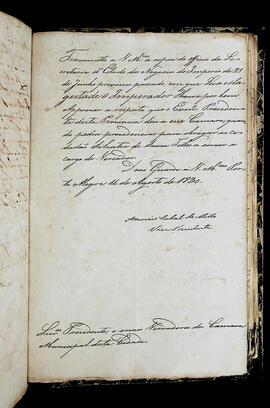 Transmitto a V. Mces a copia do Officio da Se-
cretaria d'Estado dos Negocios do Imperio de 21
de Junho proximo passado, em que Sua Mag-
estade o Imperador Houve por bem
Approvar a resposta que o Exmo Presiden-
te desta Provincia deu a essa Camara, quan-
do pedio providencias para obrigar ao ci-
dadão Silvestre de Souza Telles a servir o
cargo de Vereador.
Deos Guarde a V. Mces Por-
to Alegre 14 de Agosto de 1830.
Americo Cabral de Mello
Vice Presidente
Snres Presidente, e mais Vereadores da Camara
Municipal desta Cidade.